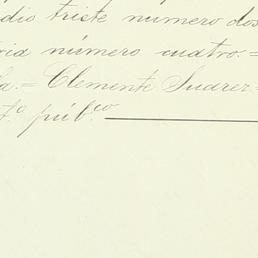 dio triste numero dos
cia número cuatro. =
la. = Clemente Suarez =
t.º púb.co